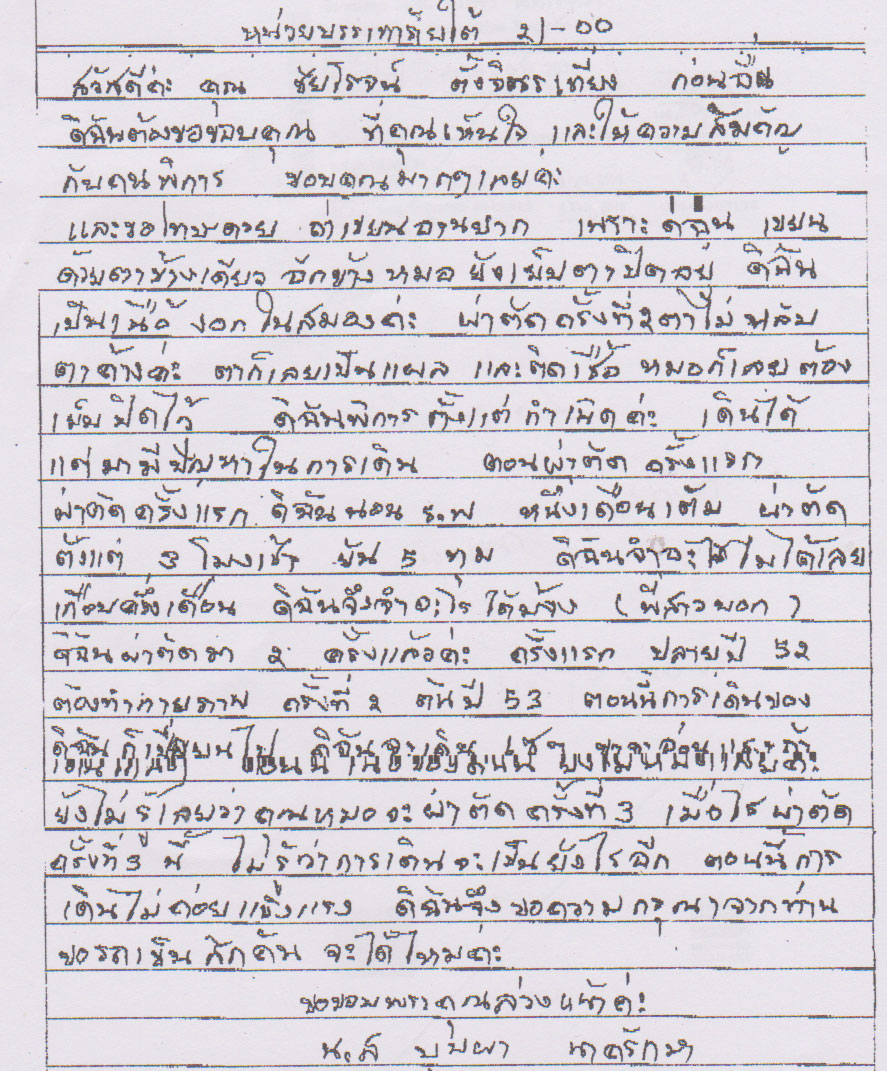 หน่วยบรรเทาภัยใต้ 21-00
สวัสดีค่ะ คุณ ชัยโรจน์ ก่อนอื่น
ดิฉันต้องขอขอบคุณ ที่คุณเห็นใจ และให้ความสัมคัญ
กับคนพิการ ขอบคุณมากๆเลยค่ะ
และขอโทษด้วย ถ้าเขียนอ่านยาก เพราะดิฉัน เขียน
ด้วยตาข้างเดียว อีกข้าง หมอ ยังเย็บตาปิดอยู่ ดิฉัน
เป็นเนื้องอกในสมองค่ะ ผ่าตัดครั้งที่2ตาไม่หลับ
ตาค้างค่ะ ตาก็เลยเป็นแผล และติดเชื้อ หมอก็เลยต้อง
เย็บปิดไว้ ดิฉันพิการตั้งแต่กำเนิดค่ะ เดินได้
แต่มามีปัญหาในการเดิน ตอนผ่าตัด ครั้งแรก
ผ่าตัดครั้งแรก ดิฉันนอน ร.พ หนึ่งเดือนเต็ม ผ่าตัด
ตั้งแต่ 3 โมงเช้า ยัน 5 ทุ่ม ดิฉันจำอะไรไม่ได้เลย
เกือบครึ่งเดือน ดิฉันจึงจำอะไรได้บ้าง (พี่สาวบอก)
ดิฉันผ่าตัดมา 2 ครั้งแล้วค่ะ ครั้งแรก ปลายปี 52
ต้องทำกายภาพ ครั้งที่ 2 ต้นปี 53 ตอนนี้การเดินของ
ดิฉันก็เปลี่ยนไป ดิฉันจะเดิน
ยังไม่รู้เลยว่าคุณหมอจะผ่าตัด ครั้งที่ 3 เมื่อไร ผ่าตัด
ครั้งที่3 นี้ ไม่รู้ว่าการเดินจะเป็นยังไรอีก ตอนนี้การ
เดินไม่ค่อยแข็งแรง ดิฉันจึงขอความกรุณาจากท่าน
ขอรถเข็นสักคัน จะได้ไหมค่ะ
ขอขอบพระคุณล่วงหน้าค่ะ
น.ส บุบผา นาครักษา